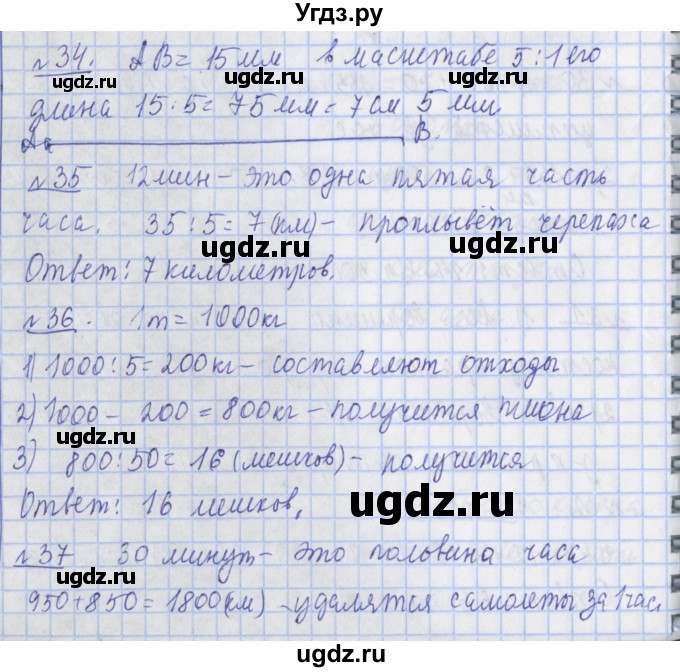 Угдз.ру
№34. AB = 15 мм в масштабе 5:1 его
длина 15·5 = 75 мм = 7 см 5 мм.
A B.
№35 12 мин – это одна пятая часть
часа. 35:5 = 7 (км) – проплывёт черепаха
Ответ: 7 километров.
№36. 1 т = 1000 кг
1) 1000:5 = 200 кг – составляют отходы
2) 1000 – 200 = 800 кг – получится пшона
3) 800:50 = 16 (мешков) – получится
Ответ: 16 мешков.
№37 30 минут – это половина часа
950 + 850 = 1800 (км) – удалятся самолеты за 1 час
ugdz.ru
ugdz.ru
ugdz.ru
ugdz.ru
ugdz.ru
ugdz.ru
ugdz.ru
ugdz.ru
ugdz.ru
ugdz.ru
ugdz.ru
ugdz.ru
ugdz.ru